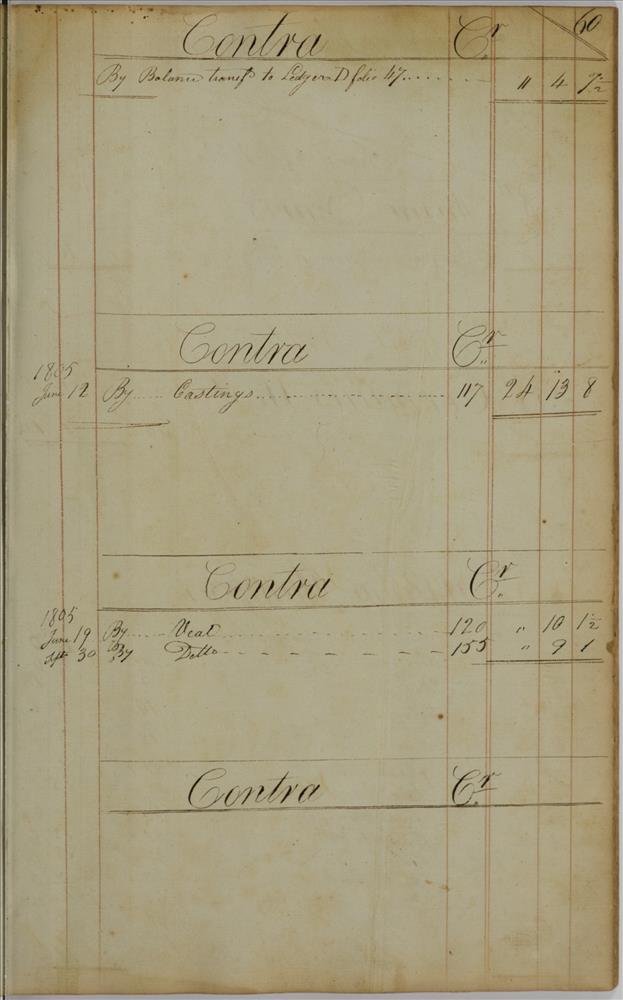 60
Contra Cr
By Balance transfd to Ledger D folio 47 " 4 7½
Contra Cr
1805
June 12 By Castings 117 24 13 8
Contra Cr
1805
June 19 By Veal 120 " 10 1½
Sept 30 By Ditto 155 " 9 1
Contra Cr